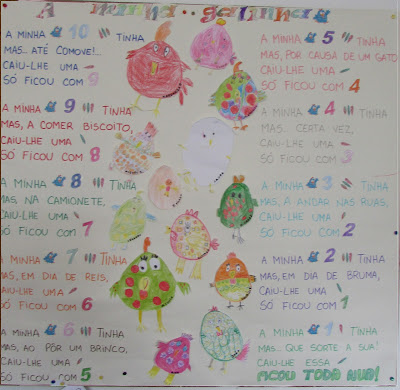 A minha.. galinha
A MINHA 10 TINHA
MAS... ATÉ COMOVE!...
CAIU-LHE UMA
SÓ FICOU COM 9
A MINHA 9 TINHA
MAS, A COMER BISCOITO,
CAIU-LHE UMA
SÓ FICOU COM 8
A MINHA 8 TINHA
MAS NA CAMIONETE,
CAIU-LHE UMA
SÓ FICOU COM 7
A MINHA 7 TINHA
MAS, EM DIA DE REIS,
CAIU-LHE UMA
SÓ FICOU COM 6
A MINHA 6 TINHA
MAS, AO PÔR UM BRINCO,
CAIU-LHE UMA
SÓ FICOU COM 5
A MINHA 5 TINHA
MAS, POR CAUSA DE UM GATO
CAIU-LHE UMA
SÓ FICOU COM 4
A MINHA 4 TINHA
MAS... CERTA VEZ,
CAIU-LHE UMA
SÓ FICOU COM 3
A MINHA 3 TINHA
MAS, A ANDAR NAS RUAS,
CAIU-LHE UMA
SÓ FICOU COM 2
A MINHA 2 TINHA
MAS, EM DIA DE BRUMA,
CAIU-LHE UMA
SÓ FICOU COM 1
A MINHA 1 TINHA
MAS... QUE SORTE A SUA!
CAIU-LHE ESSA
FICOU TODA NUA!